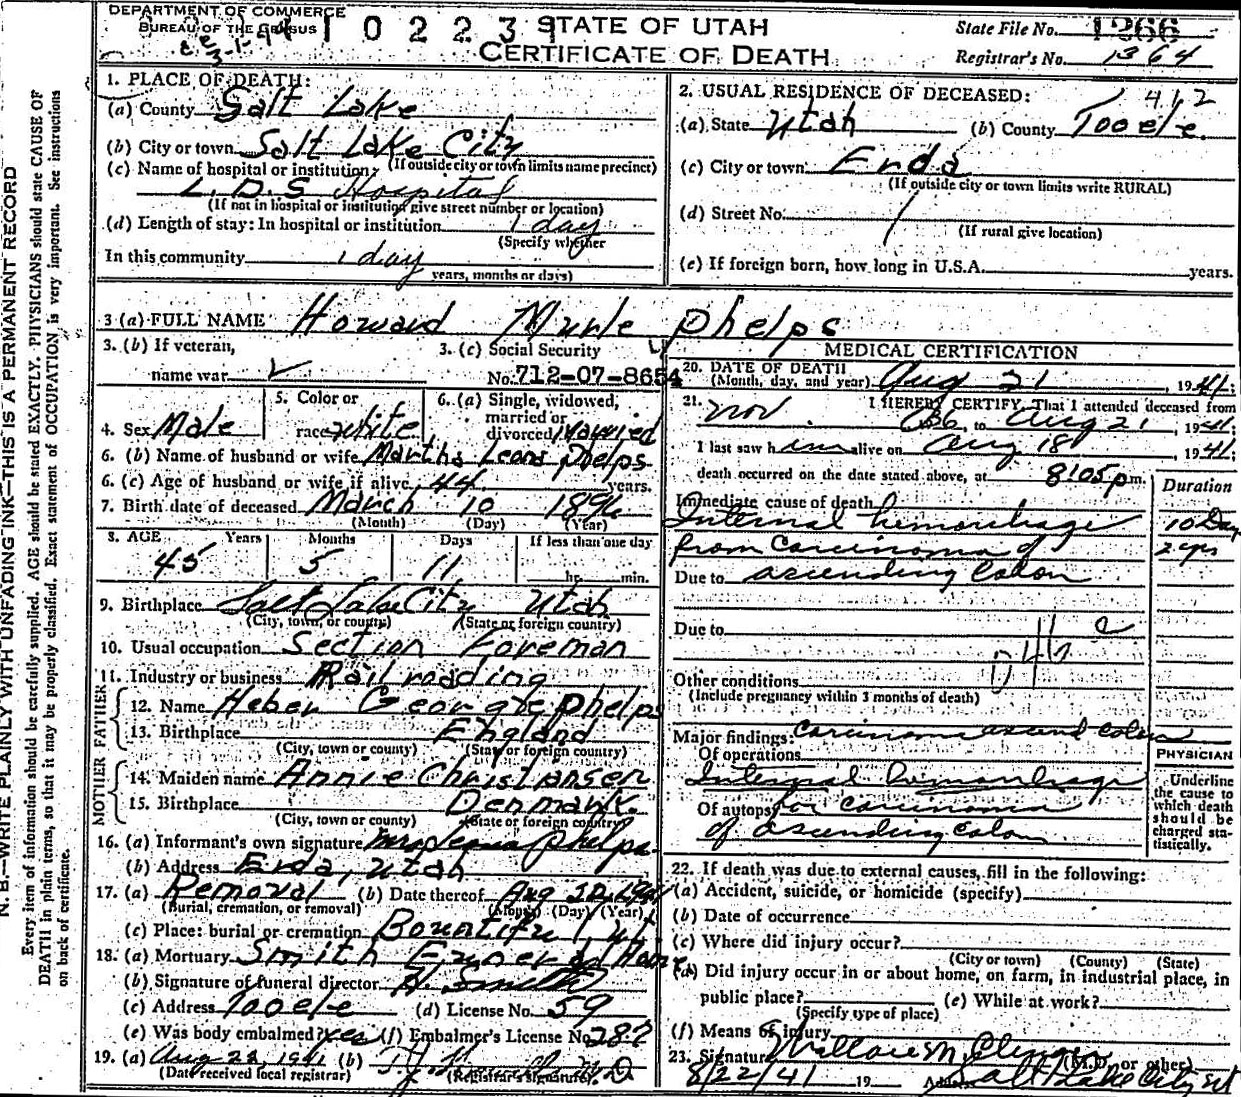 DEPARTMENT OF COMMERCE
BUREAU OF THE CENSUS
STATE OF UTAH
CERTIFICATE OF DEATH
State File No. 1266
Registrar's No. 1364
N. B.—WRITE PLAINLY WITH UNFADING INK—THIS IS A PERMANENT RECORD
Every item of information should be carefully supplied. AGE should be stated EXACTLY. PHYSICIANS should state CAUSE OF
DEATH in plain terms, so that it may be properly classified. Exact statement of OCCUPATION is very important. See instructions
on back of certificate.
1. PLACE OF DEATH:
(a) County Salt Lake
(b) City or town Salt Lake City
(If outside city or town limits name precinct)
(c) Name of hospital or institution:
L. D. S Hospital
(If not in hospital or institution give street number or location)
(d) Length of stay: In hospital or institution 1 day
(Specify whether
In this community 1 day
years, months or days)
2. USUAL RESIDENCE OF DECEASED: 412
(a) State Utah (b) County Tooele
(c) City or town Erda
(If outside city or town limits write RURAL)
(d) Street No.
(If rural give location)
(e) If foreign born, how long in U.S.A. years.
3 (a) FULL NAME Howard Murle Phelps
3. (b) If veteran,
name war
3. (c) Social Security
No. 712-07-8654
4. Sex Male
5. Color or
race white
6. (a) Single, widowed,
married or
divorced Married
6. (b) Name of husband or wife Martha Leona Phelps
6. (c) Age of husband or wife if alive 44 years.
7. Birth date of deceased March 10 1896
(Month) (Day) (Year)
8. AGE Years Months Days If less than one day
45 5 11 hr. min.
9. Birthplace Salt Lake City Utah
(City, town, or county) (State or foreign country)
10. Usual occupation Section Foreman
11. Industry or business Railroading
FATHER
12. Name Heber George Phelps
13. Birthplace England
(City, town or county) (State or foreign country)
MOTHER
14. Maiden name Annie Christansen
15. Birthplace Denmark
(City, town or county) (State or foreign country)
16. (a) Informant's own signature Mrs Leona Phelps
(b) Address Erda, Utah
17. (a) Removal (b) Date thereof Aug
(Burial, cremation, or removal) (Month) (Day) (Year)
(c) Place: burial or cremation Bountiful Ut
18. (a) Mortuary Smith Funeral Home
(b) Signature of funeral director H. Smith
(c) Address Tooele (d) License No. 59
(e) Was body embalmed? yes (f) Embalmer's License No. 282
19. (a) Aug 22, 1941 (b)
(Date received local registrar) (Registrar's signature)
MEDICAL CERTIFICATION
20. DATE OF DEATH
(Month, day, and year) Aug 21, 1941;
21. I HEREBY CERTIFY, That I attended deceased from
Nov, to Aug 21, 1941;
I last saw him alive on Aug 18, 1941;
death occurred on the date stated above, at 8:05 p m.
Duration
Immediate cause of death
Internal hemorrhage 10 Day
from Carcinoma of 2 yrs
Due to ascending Colon
Due to
Other conditions
(Include pregnancy within 3 months of death)
Major findings: Carcinoma ascend colon
Of operations
Internal hemorrhage
Of autopsy for carcinoma
of ascending colon
PHYSICIAN
Underline
the cause to
which death
should be
charged sta-
tistically.
22. If death was due to external causes, fill in the following:
(a) Accident, suicide, or homicide (specify)
(b) Date of occurrence
(c) Where did injury occur?
(City or town) (County) (State)
(d) Did injury occur in or about home, on farm, in industrial place, in
public place? (e) While at work?
(Specify type of place)
(f) Means of injury
23. Signature (M.D. or other)
8/22/41 19 Address Salt Lake City Ut